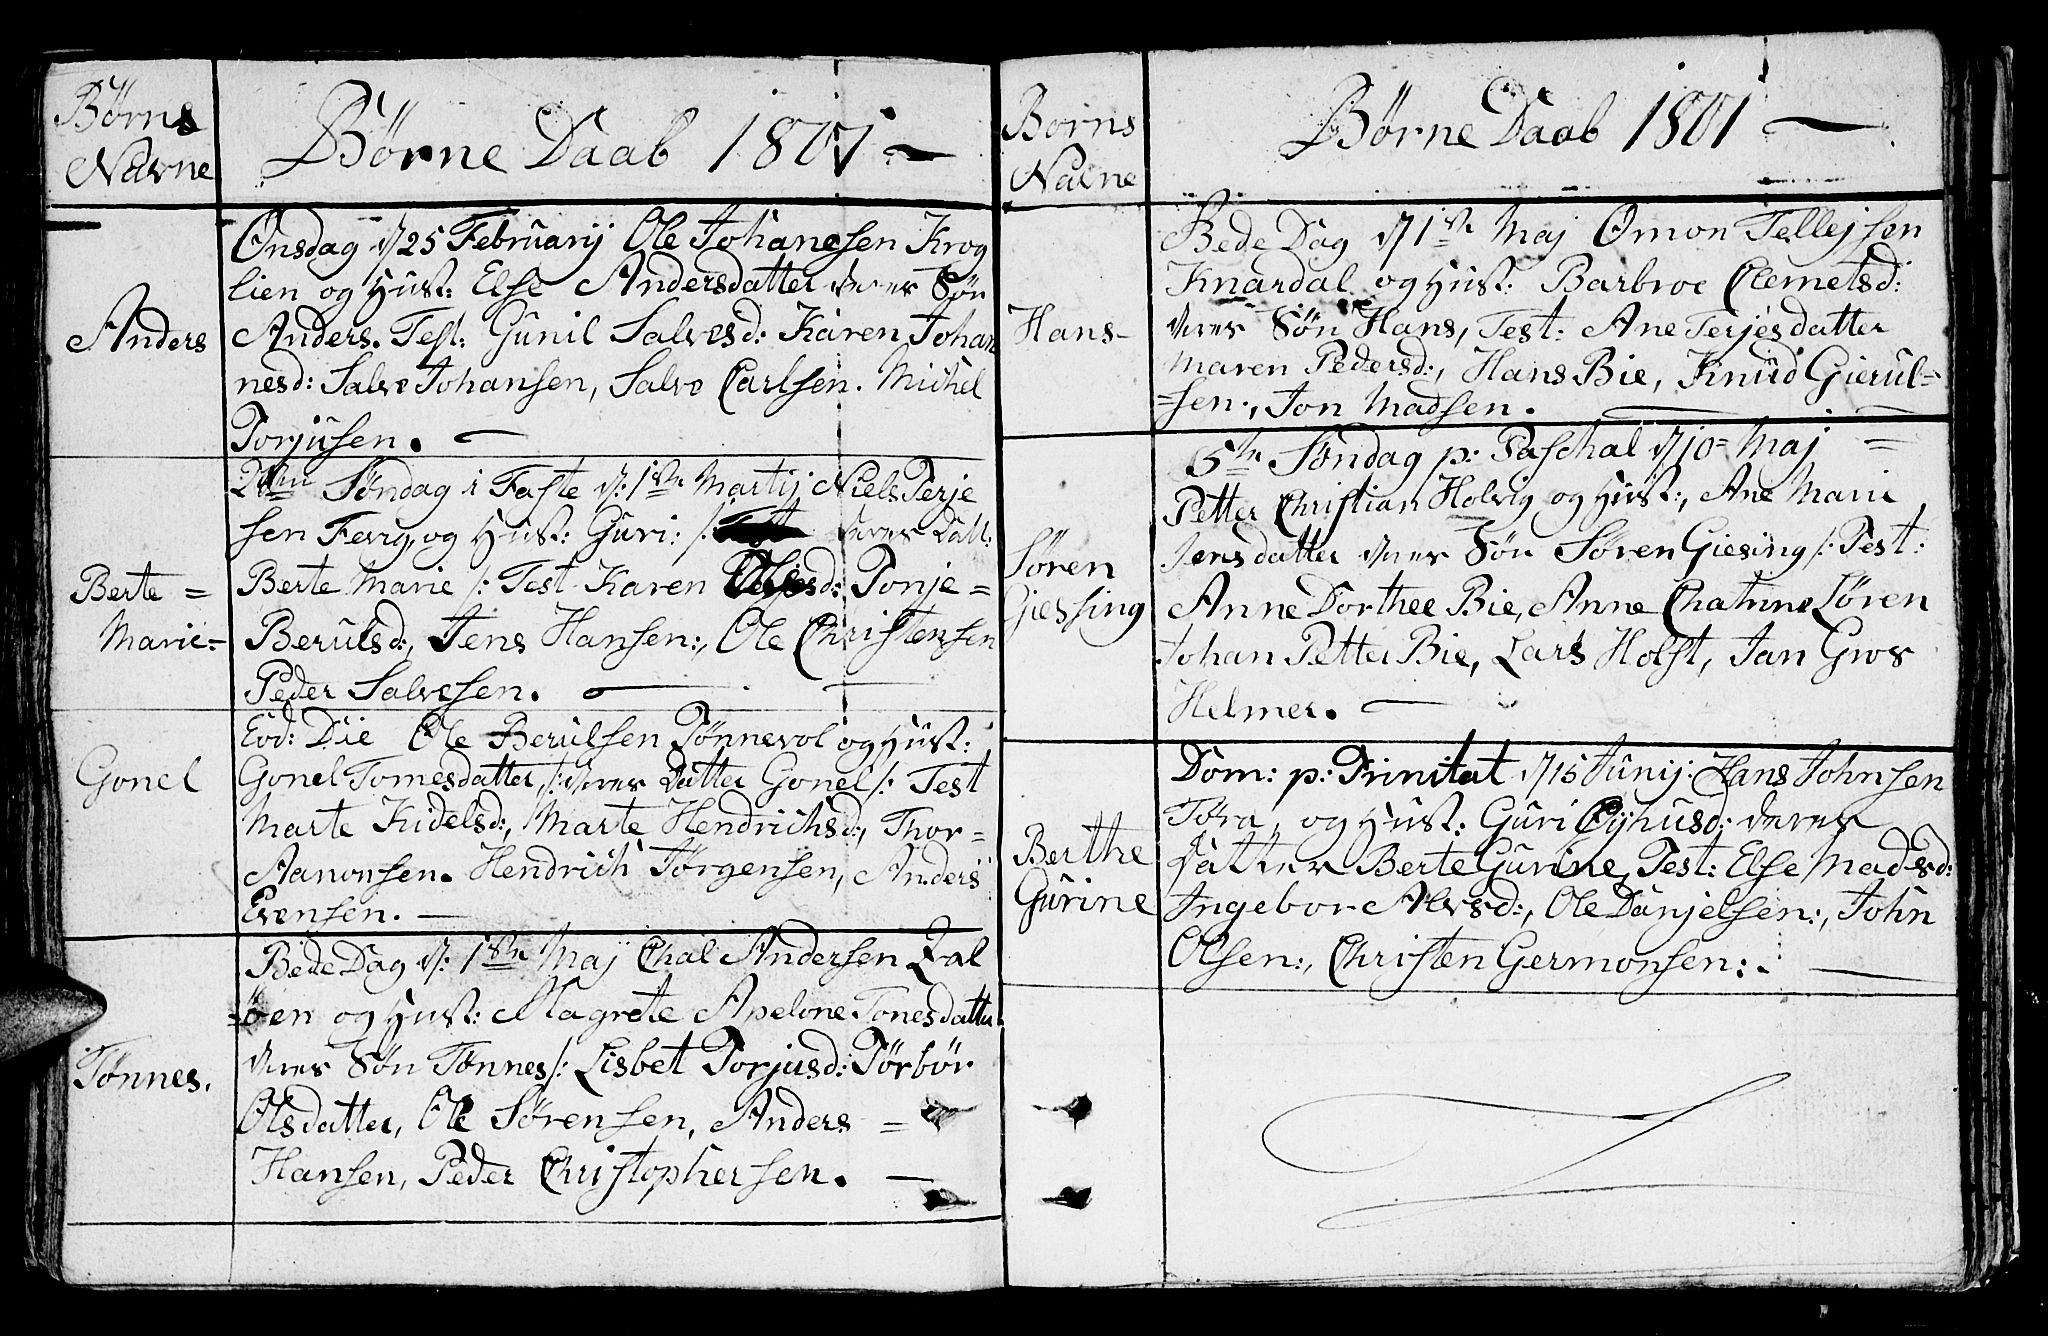 Børns
Navne
Børne Daab 1801.
Anders
Onsdag d/25 Februarij Ole Johanesen Krog
lien og Hust: Else Andersdatter deres Søn
Anders. Test: Gunil Salvesd: Karen Johan
nesd: Salve Johansen, Salve Carlsen. Michel
Torjusen.
Berte =
Marie-
2den Søndag i Faste d: 1ste Martij Niels Terje
sen Ferrg, og Hust: Guri: /: deres Datt:
Berte Marie /: Test Karen Tonje=
Berulsd:, Jens Hansen:, Ole Christensen
Peder Salvesen.
Gonel
Eod: Die Ole Berulsen Tønnevol og Hust:
Gonel Tomesdatter /: deres Datter Gonel /: Test
Marte Kidelsd:, Marte Hendrichsd:, Thor=
Aanonsen. Hendrich Jørgensen, Anders
Evensen.
Tønnes.
Bede Dag d: 1ste Maj Chal Andersen Qval
=øen og Hust: Magrete Apelone Tonesdatter
deres Søn Tønnes /: Lisbet Torjusd: Torbor
Olsdatter, Ole Sørensen, Anders =
Hansen, Peder Christophersen.
Børns
Navne
Børne Daab 1801
Hans-
Bede Dag d/1ste Maj Omon Tellejsen
Knardal og Hust: Barbroe Clemetsd:
deres Søn Hans, Test: Ane Terjesdatter
Maren Pedersd:, Hans Bie, Knud Gierul=
=sen., Jon Madsen.
Søren
Giessing
5te Søndag p: Paschal d/10= Maj =
Petter Christian Holvig og Hust:, Ane Marie
Jensdatter deres Søn Søren Giesing /: Test:
Anne Dorthee Bie, Anne Chatrine Løren
Johan Petter Bie, Lars Holst, Jan Gros
Helmer.
Berthe
Gurine
Dom: p: Trinitat d/15 Junij: Hans Johnsen
Tøra, og Hust: Guri Eyhusd: deres
Datter Berte Gurine, Test: Else Madsd:
Ingebor Alvsd:, Ole Danjelsen:, John
Olsen:, Christen Germonsen:.